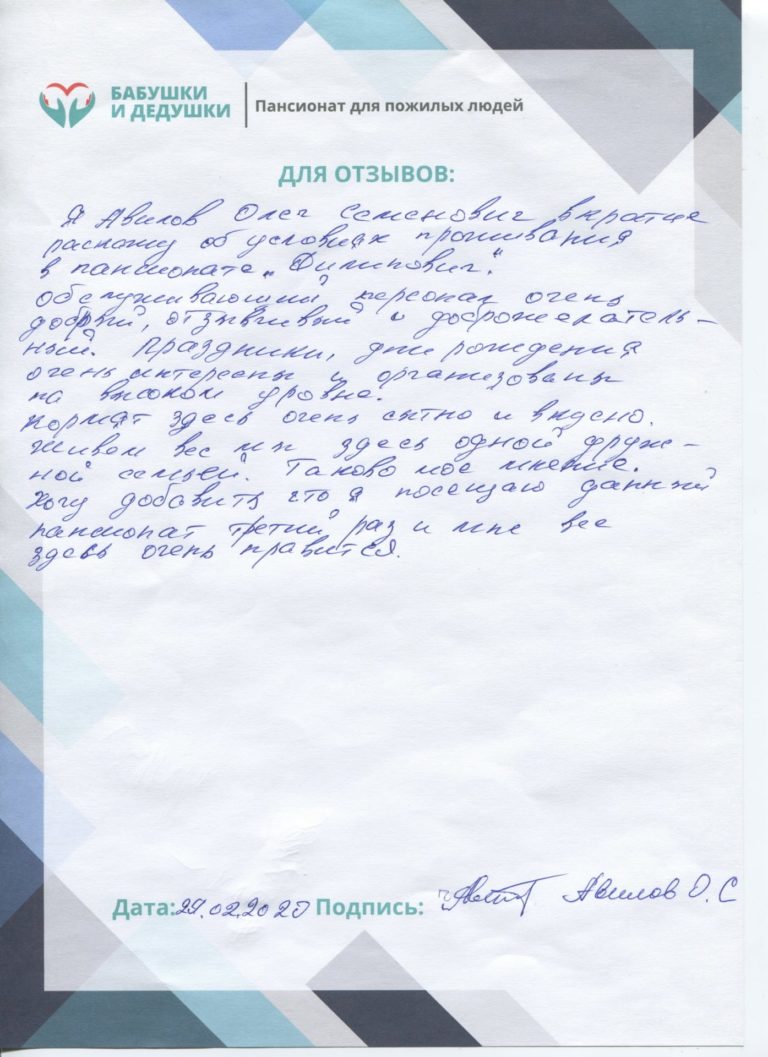 БАБУШКИ
И ДЕДУШКИ
Пансионат для пожилых людей
ДЛЯ ОТЗЫВОВ:
Я Авилов Олег Семенович вкратце
раскажу об условиях проживания
в пансионате „Филипович".
обслуживающий персонал очень
добрый, отзывчивый и доброжелатель-
ный. Праздники, дни рождения
очень интересны и организованы
на высоком уровне.
Кормят здесь очень сытно и вкусно.
Живем все мы здесь одной друж-
ной семьей. Таково мое мнение.
Хочу добавить что я посещаю данный
пансионат третий раз и мне все
здесь очень нравится.
Дата: 29.02.2020 Подпись: Авилов О.С